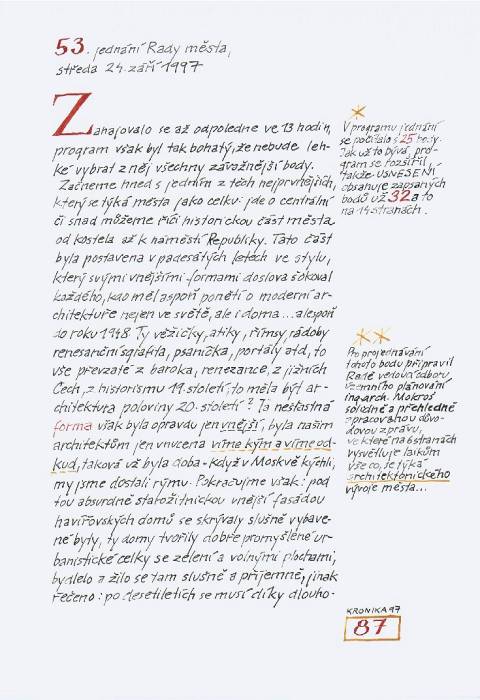 53. jednání Rady města,
středa 24. září 1997
Zahajovalo se až odpoledne ve 13 hodin,
program však byl tak bohatý, že nebude leh-
ké vybrat z něj všechny závažnější body.
Začneme hned s jedním z těch nejprvnějších,
který se týká města jako celku: jde o centrální
či snad můžeme říci historickou část města
od kostela až k náměstí Republiky. Tato část
byla postavena v padesátých letech ve stylu,
který svými vnějšími formami doslova šokoval
každého, kdo měl aspoň ponětí o moderní ar-
chitektuře nejen ve světě, ale i doma... alespoň
do roku 1948. Ty věžičky, atiky, římsy, rádoby
renesanční sgrafita, psaníčka, portály atd, to
vše převzaté z baroka, renezance, z jižních
Čech, z historismu 19. století, to měla být ar-
chitektura poloviny 20. století? Ta nešťastná
forma však byla opravdu jen vnější, byla našim
architektům jen vnucena víme kým a víme od-
kud, taková už byla doba - když v Moskvě kýchli,
my jsme dostali rýmu. Pokračujme však: pod
tou absurdně starožitnickou vnější fasádou
havířovských domů se skrývaly slušně vybave-
né byty, ty domy tvořily dobře promyšlené ur-
banistické celky se zelení a volnými plochami,
bydlelo a žilo se tam slušně a příjemně, jinak
řečeno: po desetiletích se musí díky dlouho-
V programu jednání
se počítalo s 25 body.
Jak už to bývá, pro-
gram se rozšířil,
takže USNESENÍ
obsahuje zapsaných
bodů už 32 a to
na 14 stranách.
Pro projednávání
tohoto bodu připravil
Radě vedoucí odboru
územního plánování
ing. arch. Mokroš
solidně a přehledně
zpracovanou důvo-
dovou zprávu,
ve které na 6 stranách
vysvětluje laikům
vše co se týká
architektonického
vývoje města...
KRONIKA 97
87